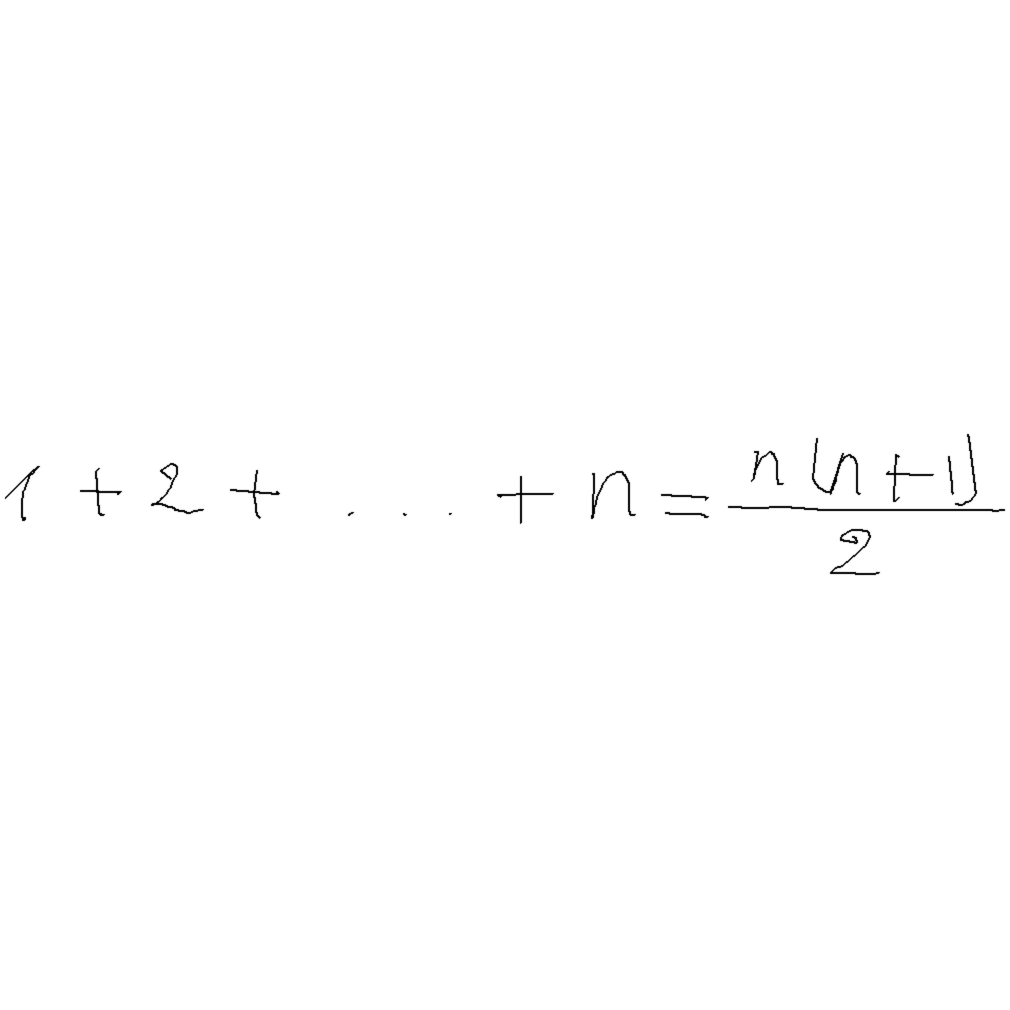 1 + 2 + ... + n = n(n+1)/2